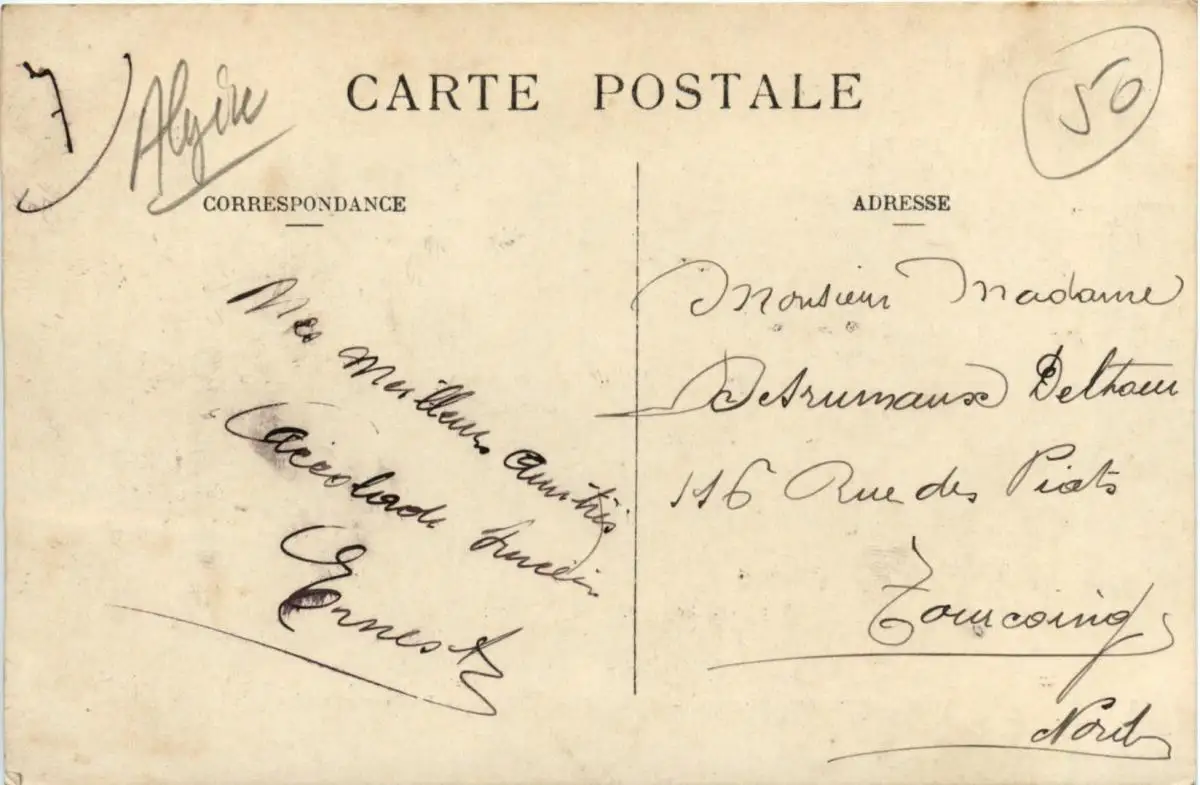 7
Algérie
CARTE POSTALE
50
CORRESPONDANCE
Mes Meilleurs amitiés
Accolade
Ernest
ADRESSE
Monsieur Madame
Desrumaux
116 Rue des Piats
Tourcoing
Nord